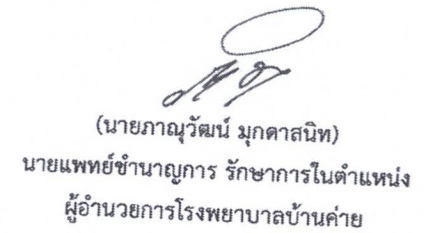 (นายภาณุวัฒน์ มุกดาสนิท)
นายแพทย์ชำนาญการ รักษาการในตำแหน่ง
ผู้อำนวยการโรงพยาบาลบ้านค่าย